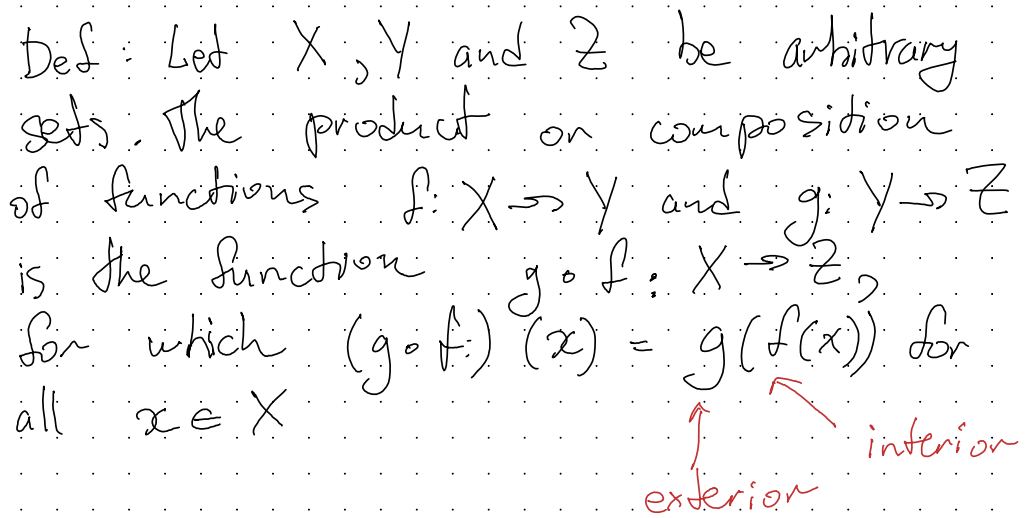 Def: Let X, Y and Z be arbitrary
sets. The product or composition
of functions f: X → Y and g: Y → Z
is the function g ∘ f : X → Z,
for which (g ∘ f) (x) = g(f(x)) for
all x ∈ X
interior
exterior